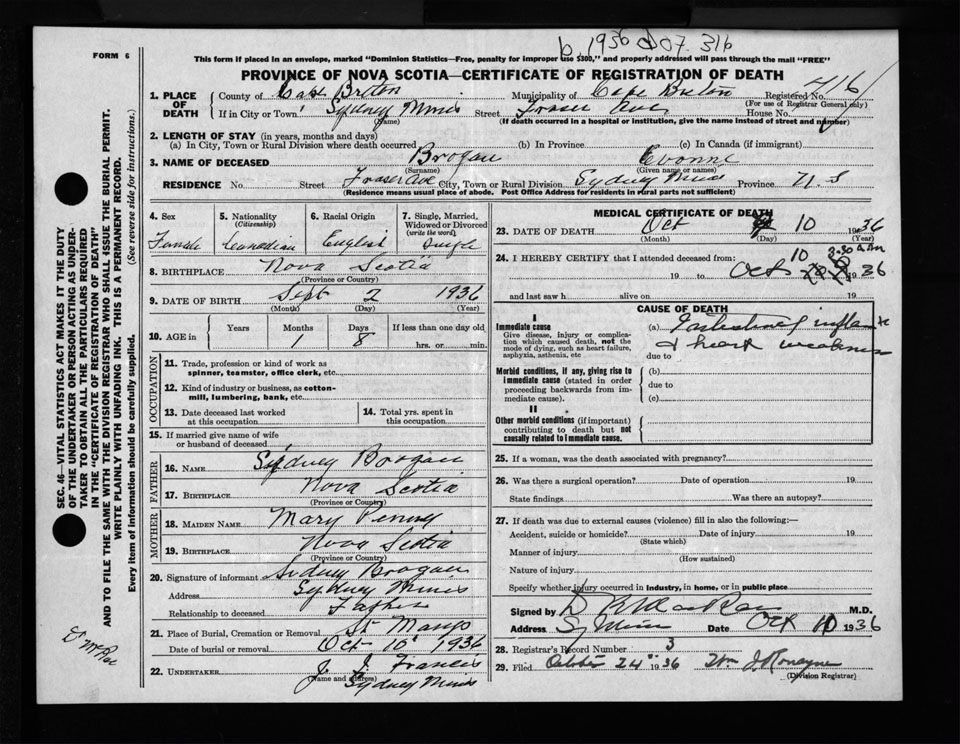 b. 1936 d 07. 316
FORM 6
This form if placed in an envelope, marked "Dominion Statistics—Free, penalty for improper use $300," and properly addressed will pass through the mail "FREE"
PROVINCE OF NOVA SCOTIA—CERTIFICATE OF REGISTRATION OF DEATH
1. PLACE OF DEATH
County of Cape Breton Municipality of Cape Breton Registered No.
(For use of Registrar General only)
If in City or Town Sydney Mines Street Fraser Ave House No.
(Name) (If death occurred in a hospital or institution, give the name instead of street and number)
2. LENGTH OF STAY (in years, months and days)
(a) In City, Town or Rural Division where death occurred (b) In Province (c) In Canada (if immigrant)
3. NAME OF DECEASED Brogan Evonne
(Surname) (Given name or names)
RESIDENCE No. Street Fraser Ave City, Town or Rural Division Sydney Mines Province N.S
(Residence means usual place of abode. Post Office Address for residents in rural parts not sufficient)
4. Sex
Female
5. Nationality (Citizenship)
Canadian
6. Racial Origin
English
7. Single, Married, Widowed or Divorced (write the word)
Single
8. BIRTHPLACE Nova Scotia
(Province or Country)
9. DATE OF BIRTH Sept 2 1936
(Month) (Day) (Year)
10. AGE in Years Months Days If less than one day old
1 8 hrs. or min.
OCCUPATION
11. Trade, profession or kind of work as spinner, teamster, office clerk, etc.
12. Kind of industry or business, as cotton-mill, lumbering, bank, etc.
13. Date deceased last worked at this occupation
14. Total yrs. spent in this occupation
15. If married give name of wife or husband of deceased
FATHER
16. NAME Sydney Brogan
17. BIRTHPLACE Nova Scotia
(Province or Country)
MOTHER
18. MAIDEN NAME Mary Penney
19. BIRTHPLACE Nova Scotia
(Province or Country)
20. Signature of informant Sidney Brogan
Address Sydney Mines
Relationship to deceased Father
21. Place of Burial, Cremation or Removal St Marys
Date of burial or removal Oct 10 1936
22. UNDERTAKER J. J. Francis
(Name and address)
Sydney Mines
MEDICAL CERTIFICATE OF DEATH
23. DATE OF DEATH Oct 10 1936
(Month) (Day) (Year)
24. I HEREBY CERTIFY that I attended deceased from:
19 to Oct 10 2.30 1936
and last saw h alive on 19
CAUSE OF DEATH
I
Immediate cause
Give disease, injury or complication which caused death, not the mode of dying, such as heart failure, asphyxia, asthenia, etc
(a)
& heart weakness
due to
Morbid conditions, if any, giving rise to immediate cause (stated in order proceeding backwards from immediate cause).
(b)
due to
(c)
II
Other morbid conditions (if important) contributing to death but not causally related to immediate cause.
25. If a woman, was the death associated with pregnancy?
26. Was there a surgical operation? Date of operation 19
State findings Was there an autopsy?
27. If death was due to external causes (violence) fill in also the following:—
Accident, suicide or homicide? Date of injury 19
(State which)
Manner of injury
(How sustained)
Nature of injury
Specify whether injury occurred in industry, in home, or in public place
Signed by M.D.
Address Sy Mines Date Oct 10 1936
28. Registrar's Record Number 3
29. Filed October 24 1936
(Division Registrar)
SEC. 46—VITAL STATISTICS ACT MAKES IT THE DUTY
OF THE UNDERTAKER OR PERSON ACTING AS UNDER-
TAKER TO OBTAIN ALL THE PARTICULARS REQUIRED
IN THE "CERTIFICATE OF REGISTRATION OF DEATH"
AND TO FILE THE SAME WITH THE DIVISION REGISTRAR WHO SHALL ISSUE THE BURIAL PERMIT.
WRITE PLAINLY WITH UNFADING INK. THIS IS A PERMANENT RECORD.
Every item of information should be carefully supplied. (See reverse side for instructions.)